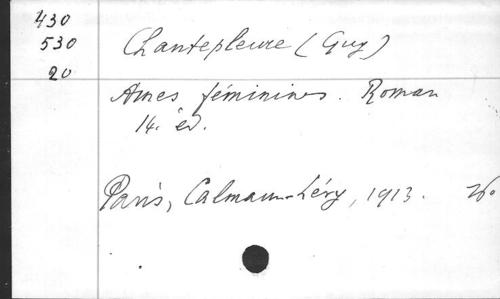 430
530
20
Chantepleure (Guy)
Ames féminines. Roman
14. éd.
Paris, Calmann-Lévy, 1913.